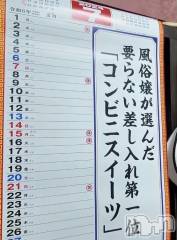 7
1
2
3
4
5
6
7
8
9
10
11
12
13
14
15
16
17
18
19
20
21
22
23
24
25
26
27
風俗嬢が選んだ
要らない差し入れ第一位
「コンビニスイーツ」